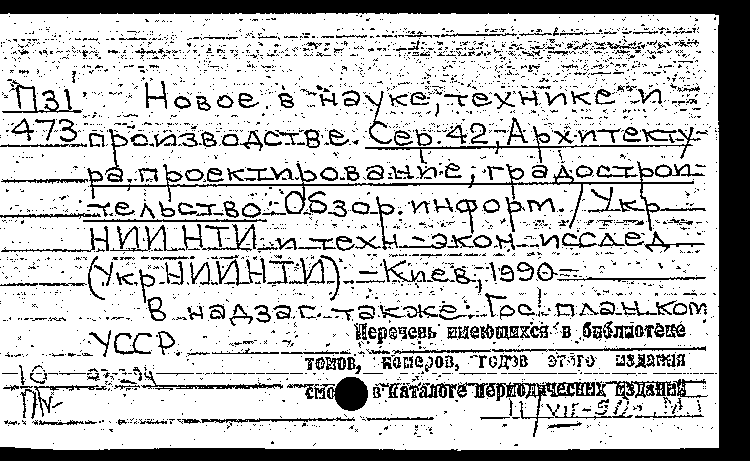 П31 Новое в науке, технике и
473 производстве. Сер. 42, Архитекту-
ра, проектирование, градострои-
тельство: Обзор. информ. / Укр
НИИ НТИ и техн.-экон. исслед.
(УкрНИИНТИ). - Киев, 1990-
В надзаг. также: Гос. план. ком
УССР.
Перечень имеющихся в библиотеке
томов, номеров, годов этого издания
смо в каталоге периодических изданий
10